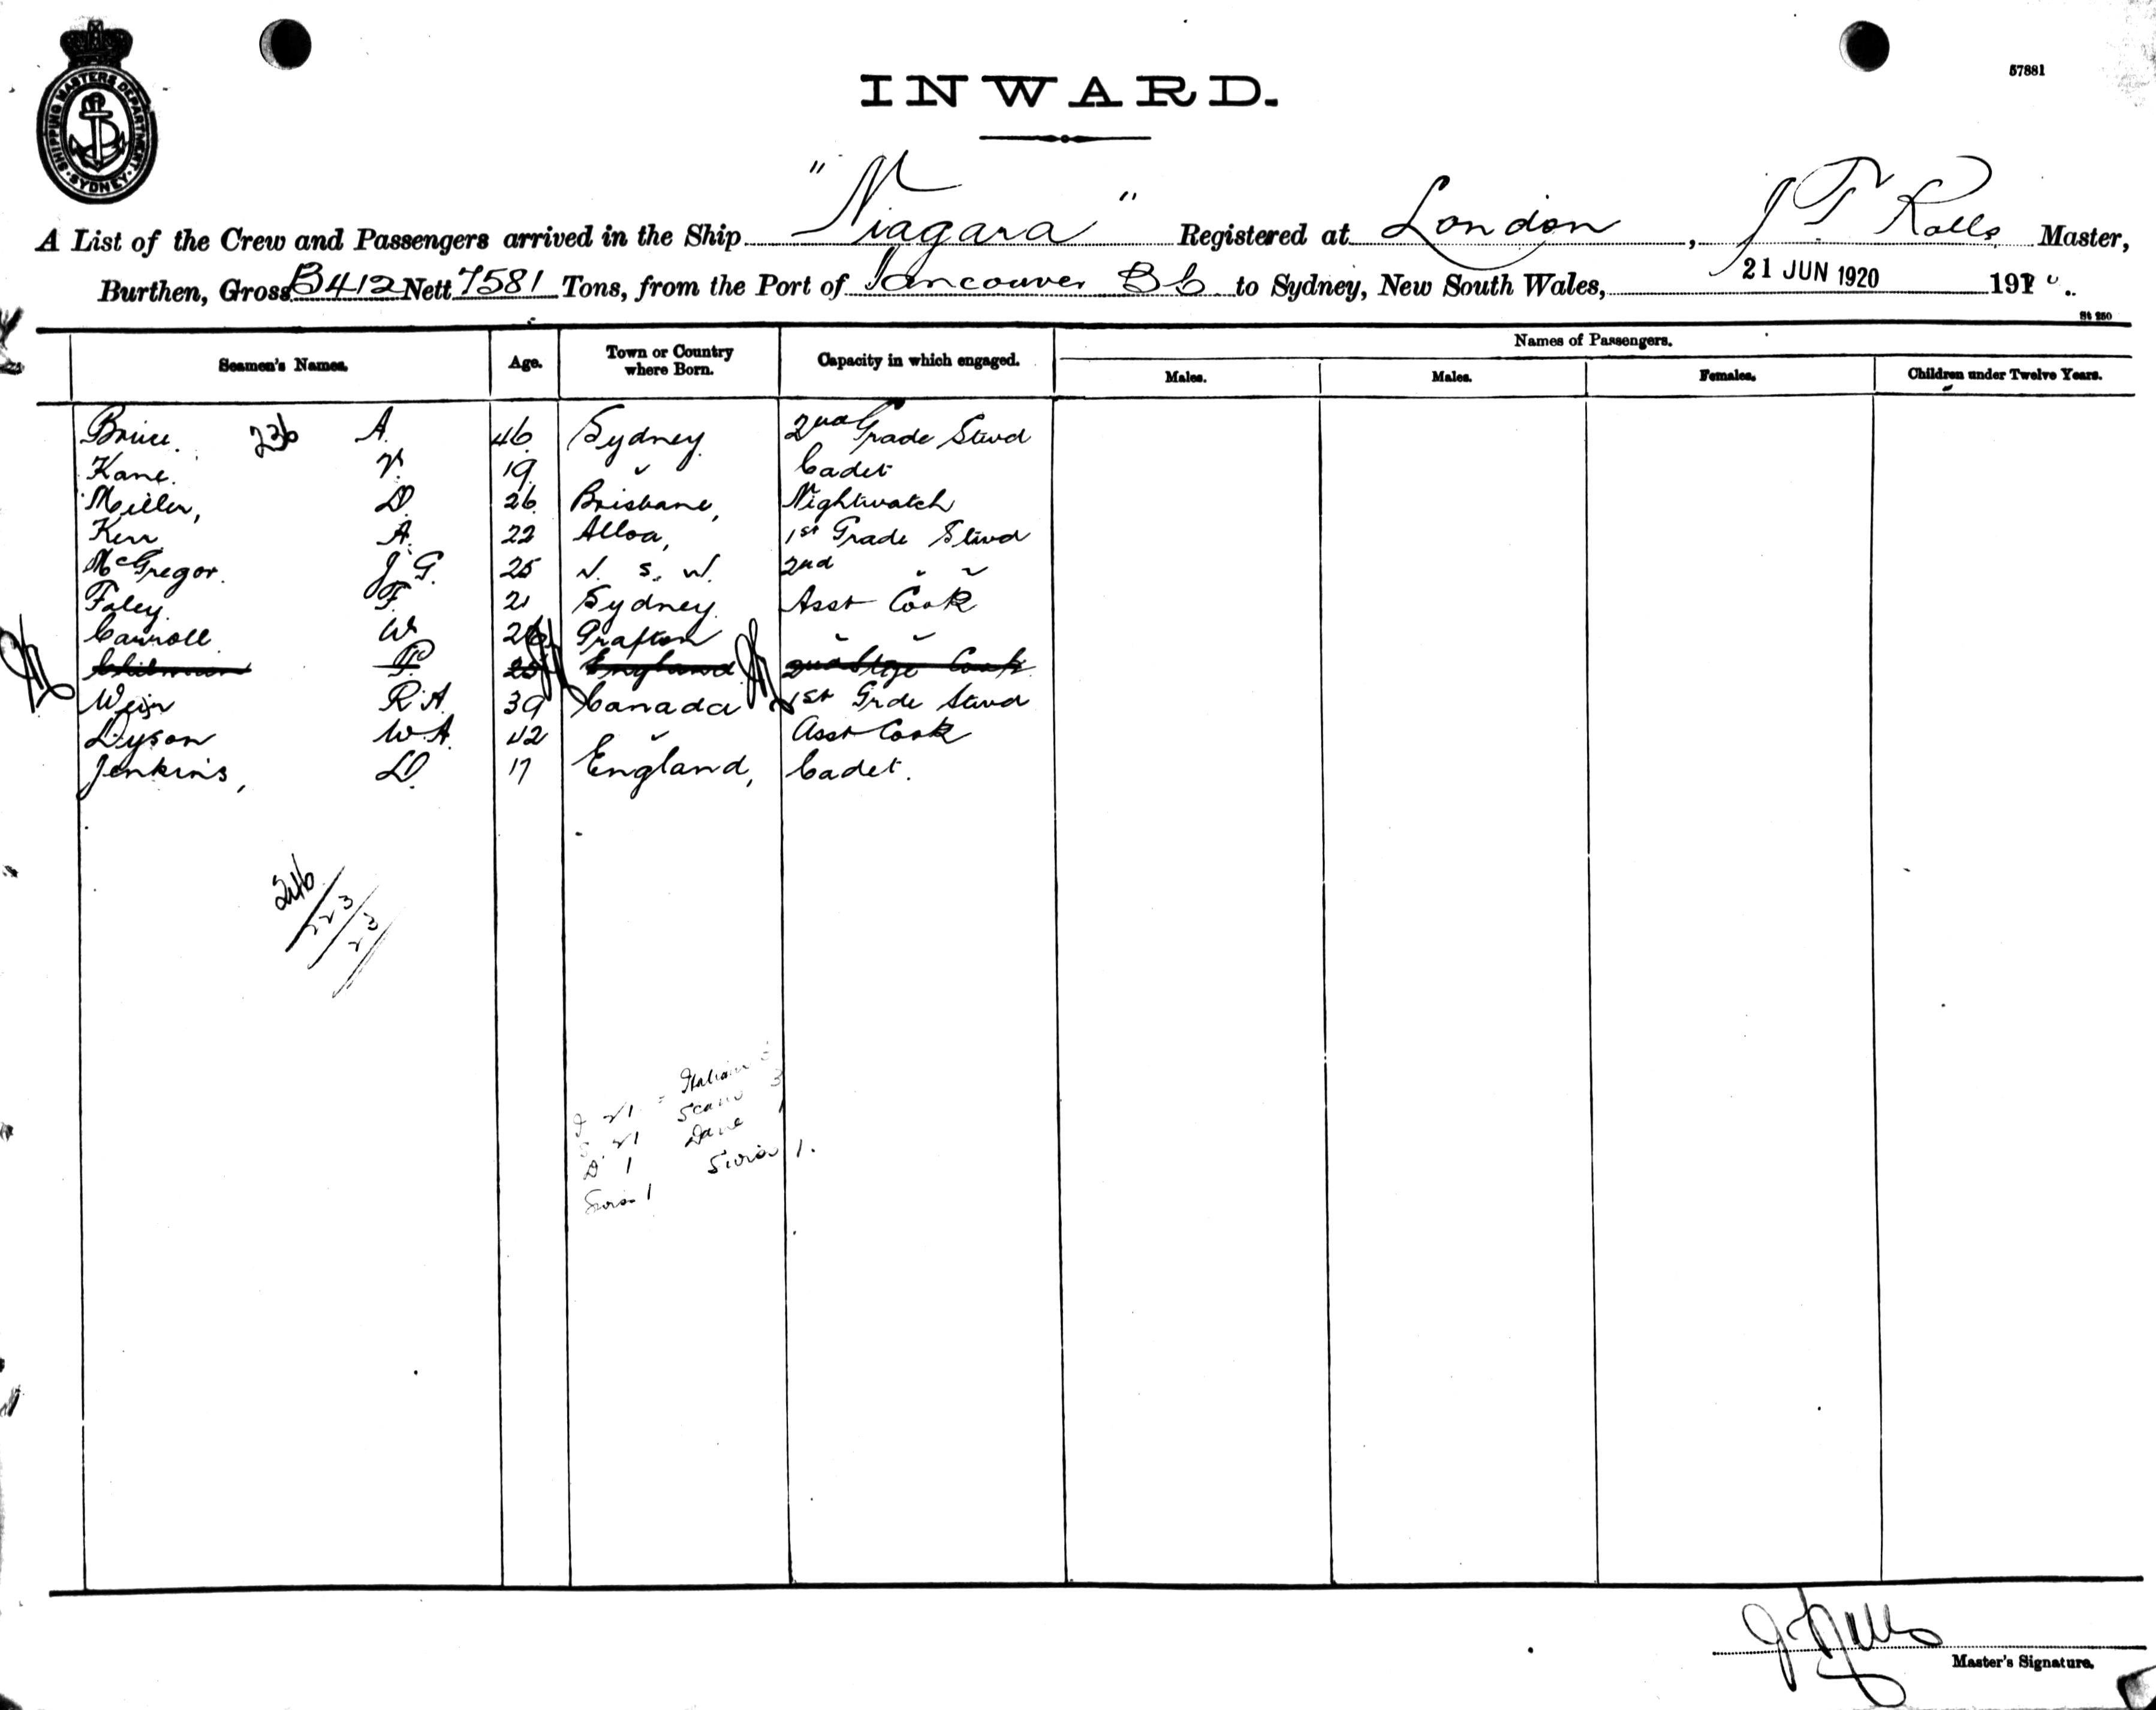 SHIPPING MASTERS DEPARTMENT
SYDNEY
57881
INWARD.
A List of the Crew and Passengers arrived in the Ship "Niagara" Registered at London, J T Rolls Master,
Burthen, Gross 13412 Nett 7581 Tons, from the Port of Vancouver BC to Sydney, New South Wales, 21 JUN 1920 191
St 260
Seamen's Names. Age. Town or Country where Born. Capacity in which engaged. Names of Passengers.
Males. Males. Females. Children under Twelve Years.
Bruce. 236 A. 46 Sydney. 2nd Grade Stwd
Kane. V. 19 " Cadet
Miller, D. 26 Brisbane, Nightwatch
Kerr A. 22 Alloa, 1st Grade Stwd
McGregor. J G. 25 N. S. W. 2nd " "
Foley. F. 21 Sydney. Asst Cook
Carroll. W 26 Grafton " "
P. 25 England 2nd Cook
Weir R.A. 39 Canada 1st Grde Stwd
Dyson W.A. 42 " Asst Cook
Jenkins, D. 17 England, Cadet.
246
223
23
Italian
Scan 3
Dane 1
Swiss 1.
D 1
Swiss 1
Master's Signature.